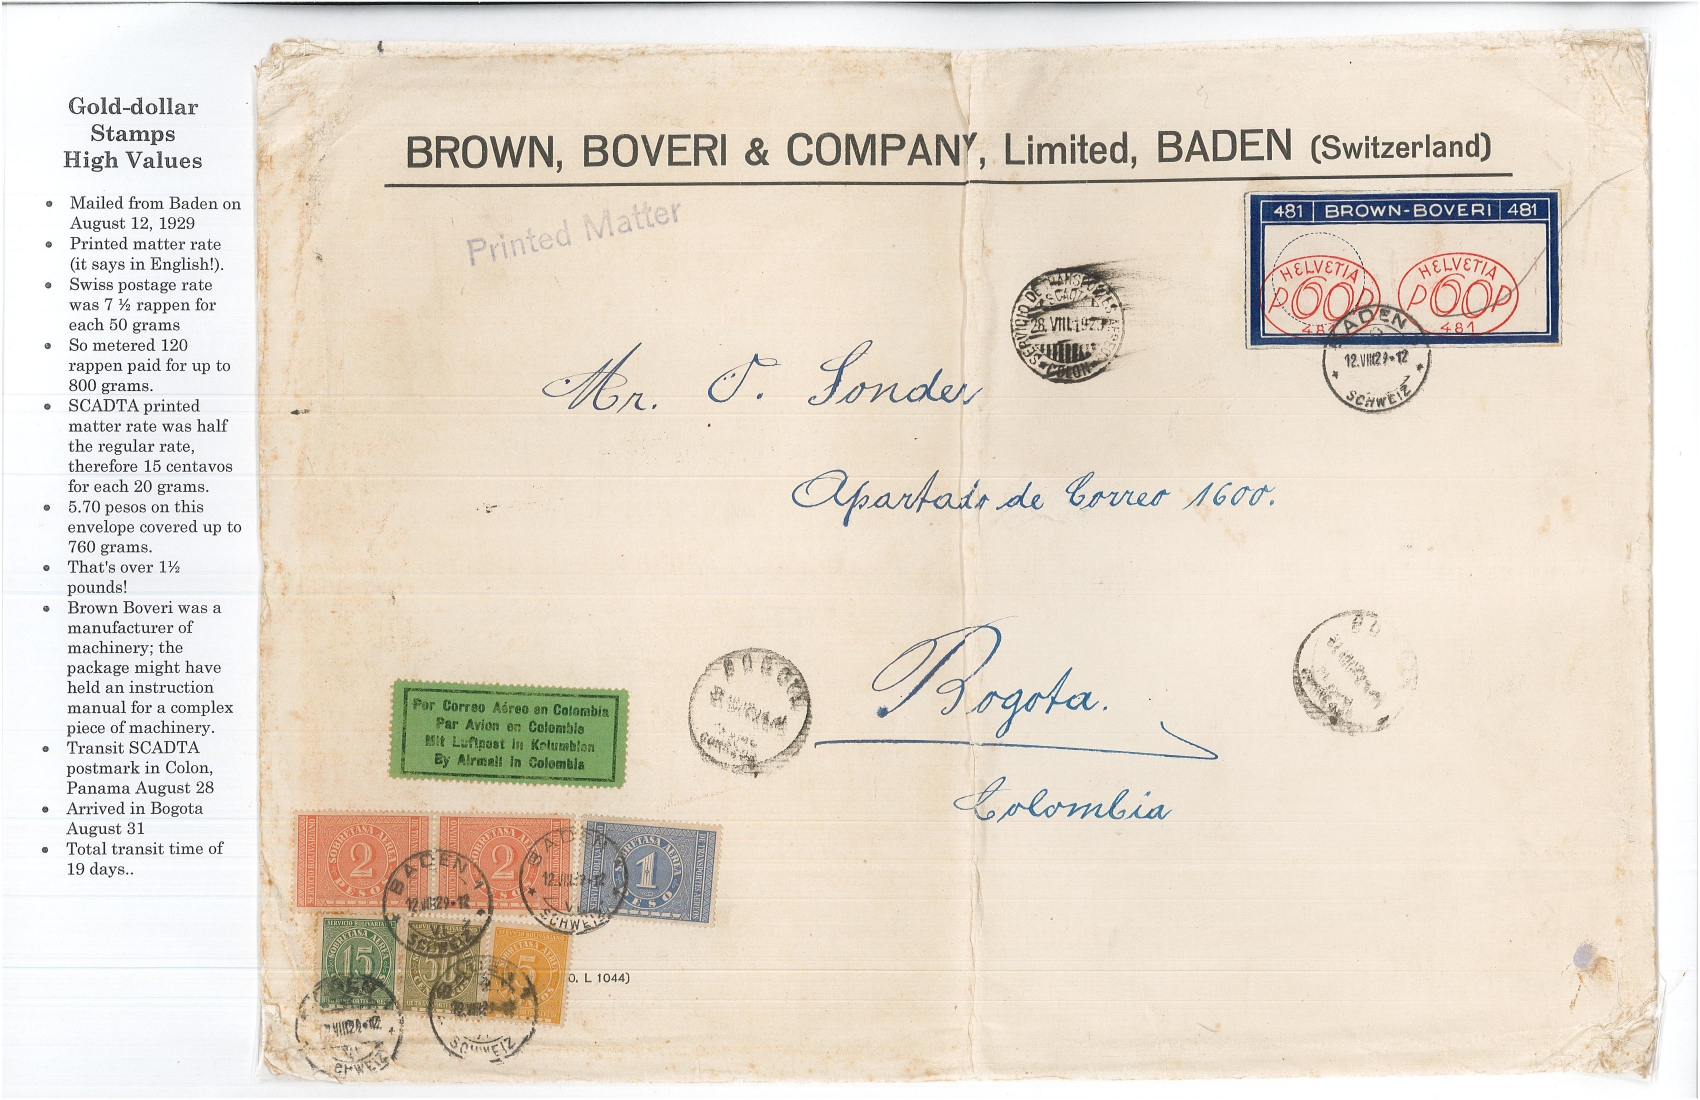 Gold-dollar
Stamps
High Values
• Mailed from Baden on
August 12, 1929
• Printed matter rate
(it says in English!).
• Swiss postage rate
was 7 ½ rappen for
each 50 grams
• So metered 120
rappen paid for up to
800 grams.
• SCADTA printed
matter rate was half
the regular rate,
therefore 15 centavos
for each 20 grams.
• 5.70 pesos on this
envelope covered up to
760 grams.
• That's over 1½
pounds!
• Brown Boveri was a
manufacturer of
machinery; the
package might have
held an instruction
manual for a complex
piece of machinery.
• Transit SCADTA
postmark in Colon,
Panama August 28
• Arrived in Bogota
August 31
• Total transit time of
19 days..
BROWN, BOVERI & COMPANY, Limited, BADEN (Switzerland)
Printed Matter
481 | BROWN-BOVERI | 481
HELVETIA
P 60 P
481
HELVETIA
P 60 P
481
BADEN
12.VIII29-12
SCHWEIZ
SERVICIO DE TRANSPORTES AEREOS
SCADTA
28.VIII.192
COLON
Mr. T. Sonder
Apartado de Correo 1600.
Bogota.
Colombia
BOGOTA
Por Correo Aéreo en Colombia
Par Avion en Colombie
Mit Luftpost in Kolumbien
By Airmail in Colombia
SOBRETASA AEREA
2
PESOS
SOBRETASA AEREA
2
PESOS
SOBRETASA AEREA
1
PESO
BADEN
12.VIII29-12
SCHWEIZ
BADEN
12.VIII29-12
SCHWEIZ
SOBRETASA AEREA
15
SOBRETASA AEREA
50
SOBRETASA AEREA
5
O. L 1044)
SCHWEIZ